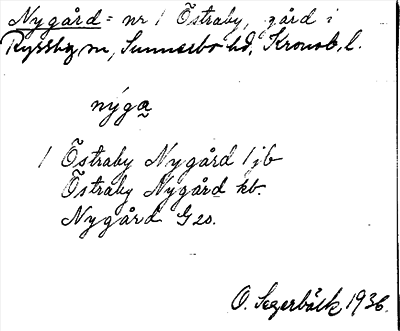 Nygård = nr 1 Östraby, gård i
Ryssby, sn, Sunnerbo hd, Kronob. l.
nýga
1 Östraby Nygård 1 jb
Östraby Nygård kb.
Nygård G 20.
O. Segerbäck 1936.